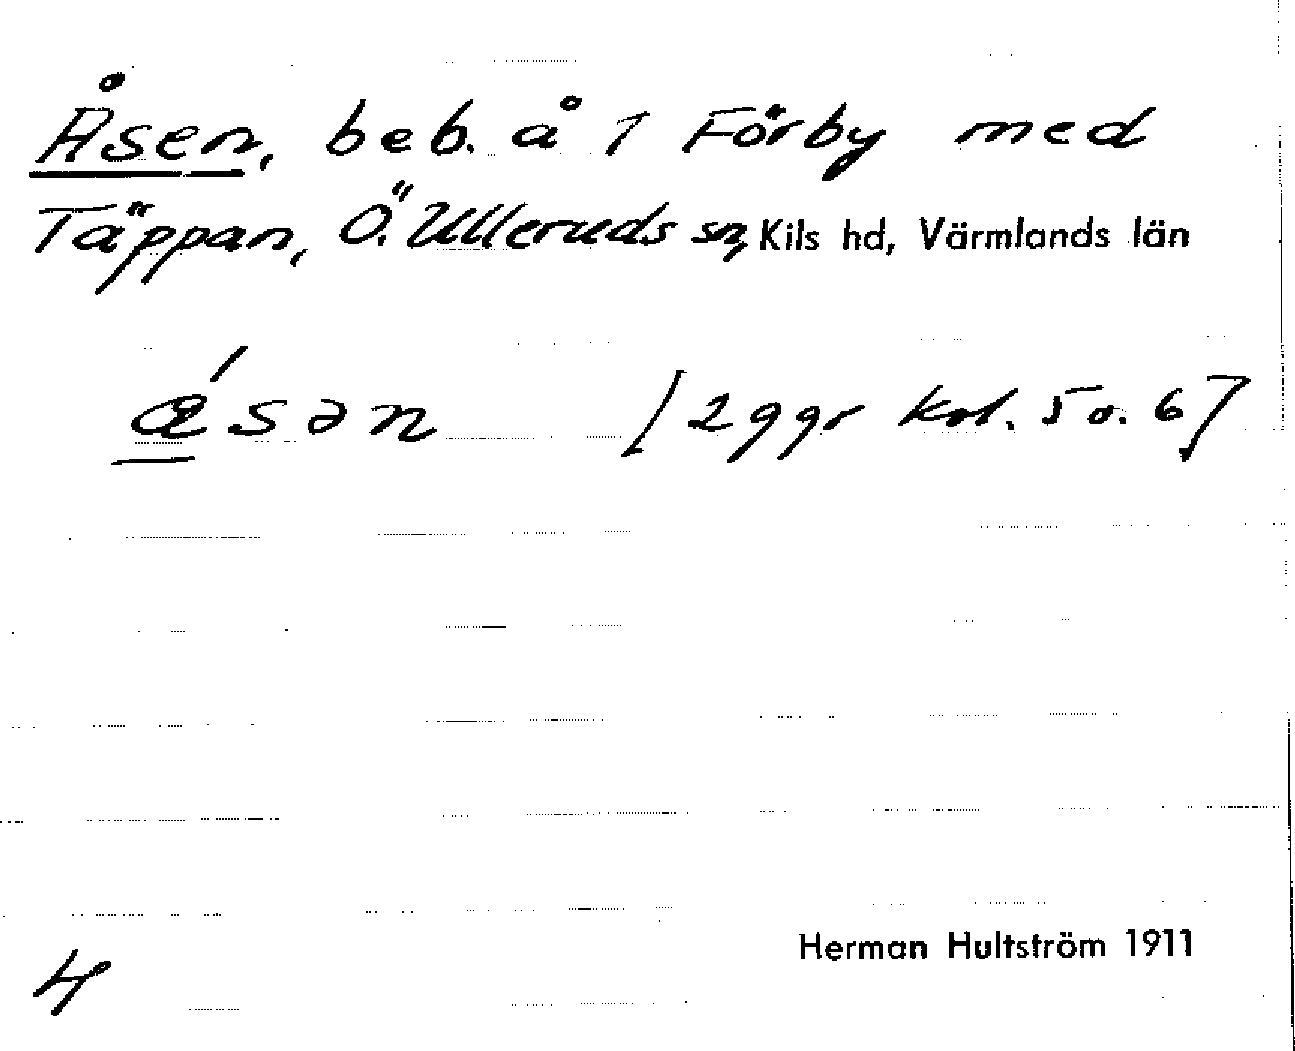 Åsen, beb. å 1 Förby med
Täppan, Ö. Ulleruds sn, Kils hd, Värmlands län
ǽsən [2 ggr kol. 5 o. 6]
Herman Hultström 1911
4